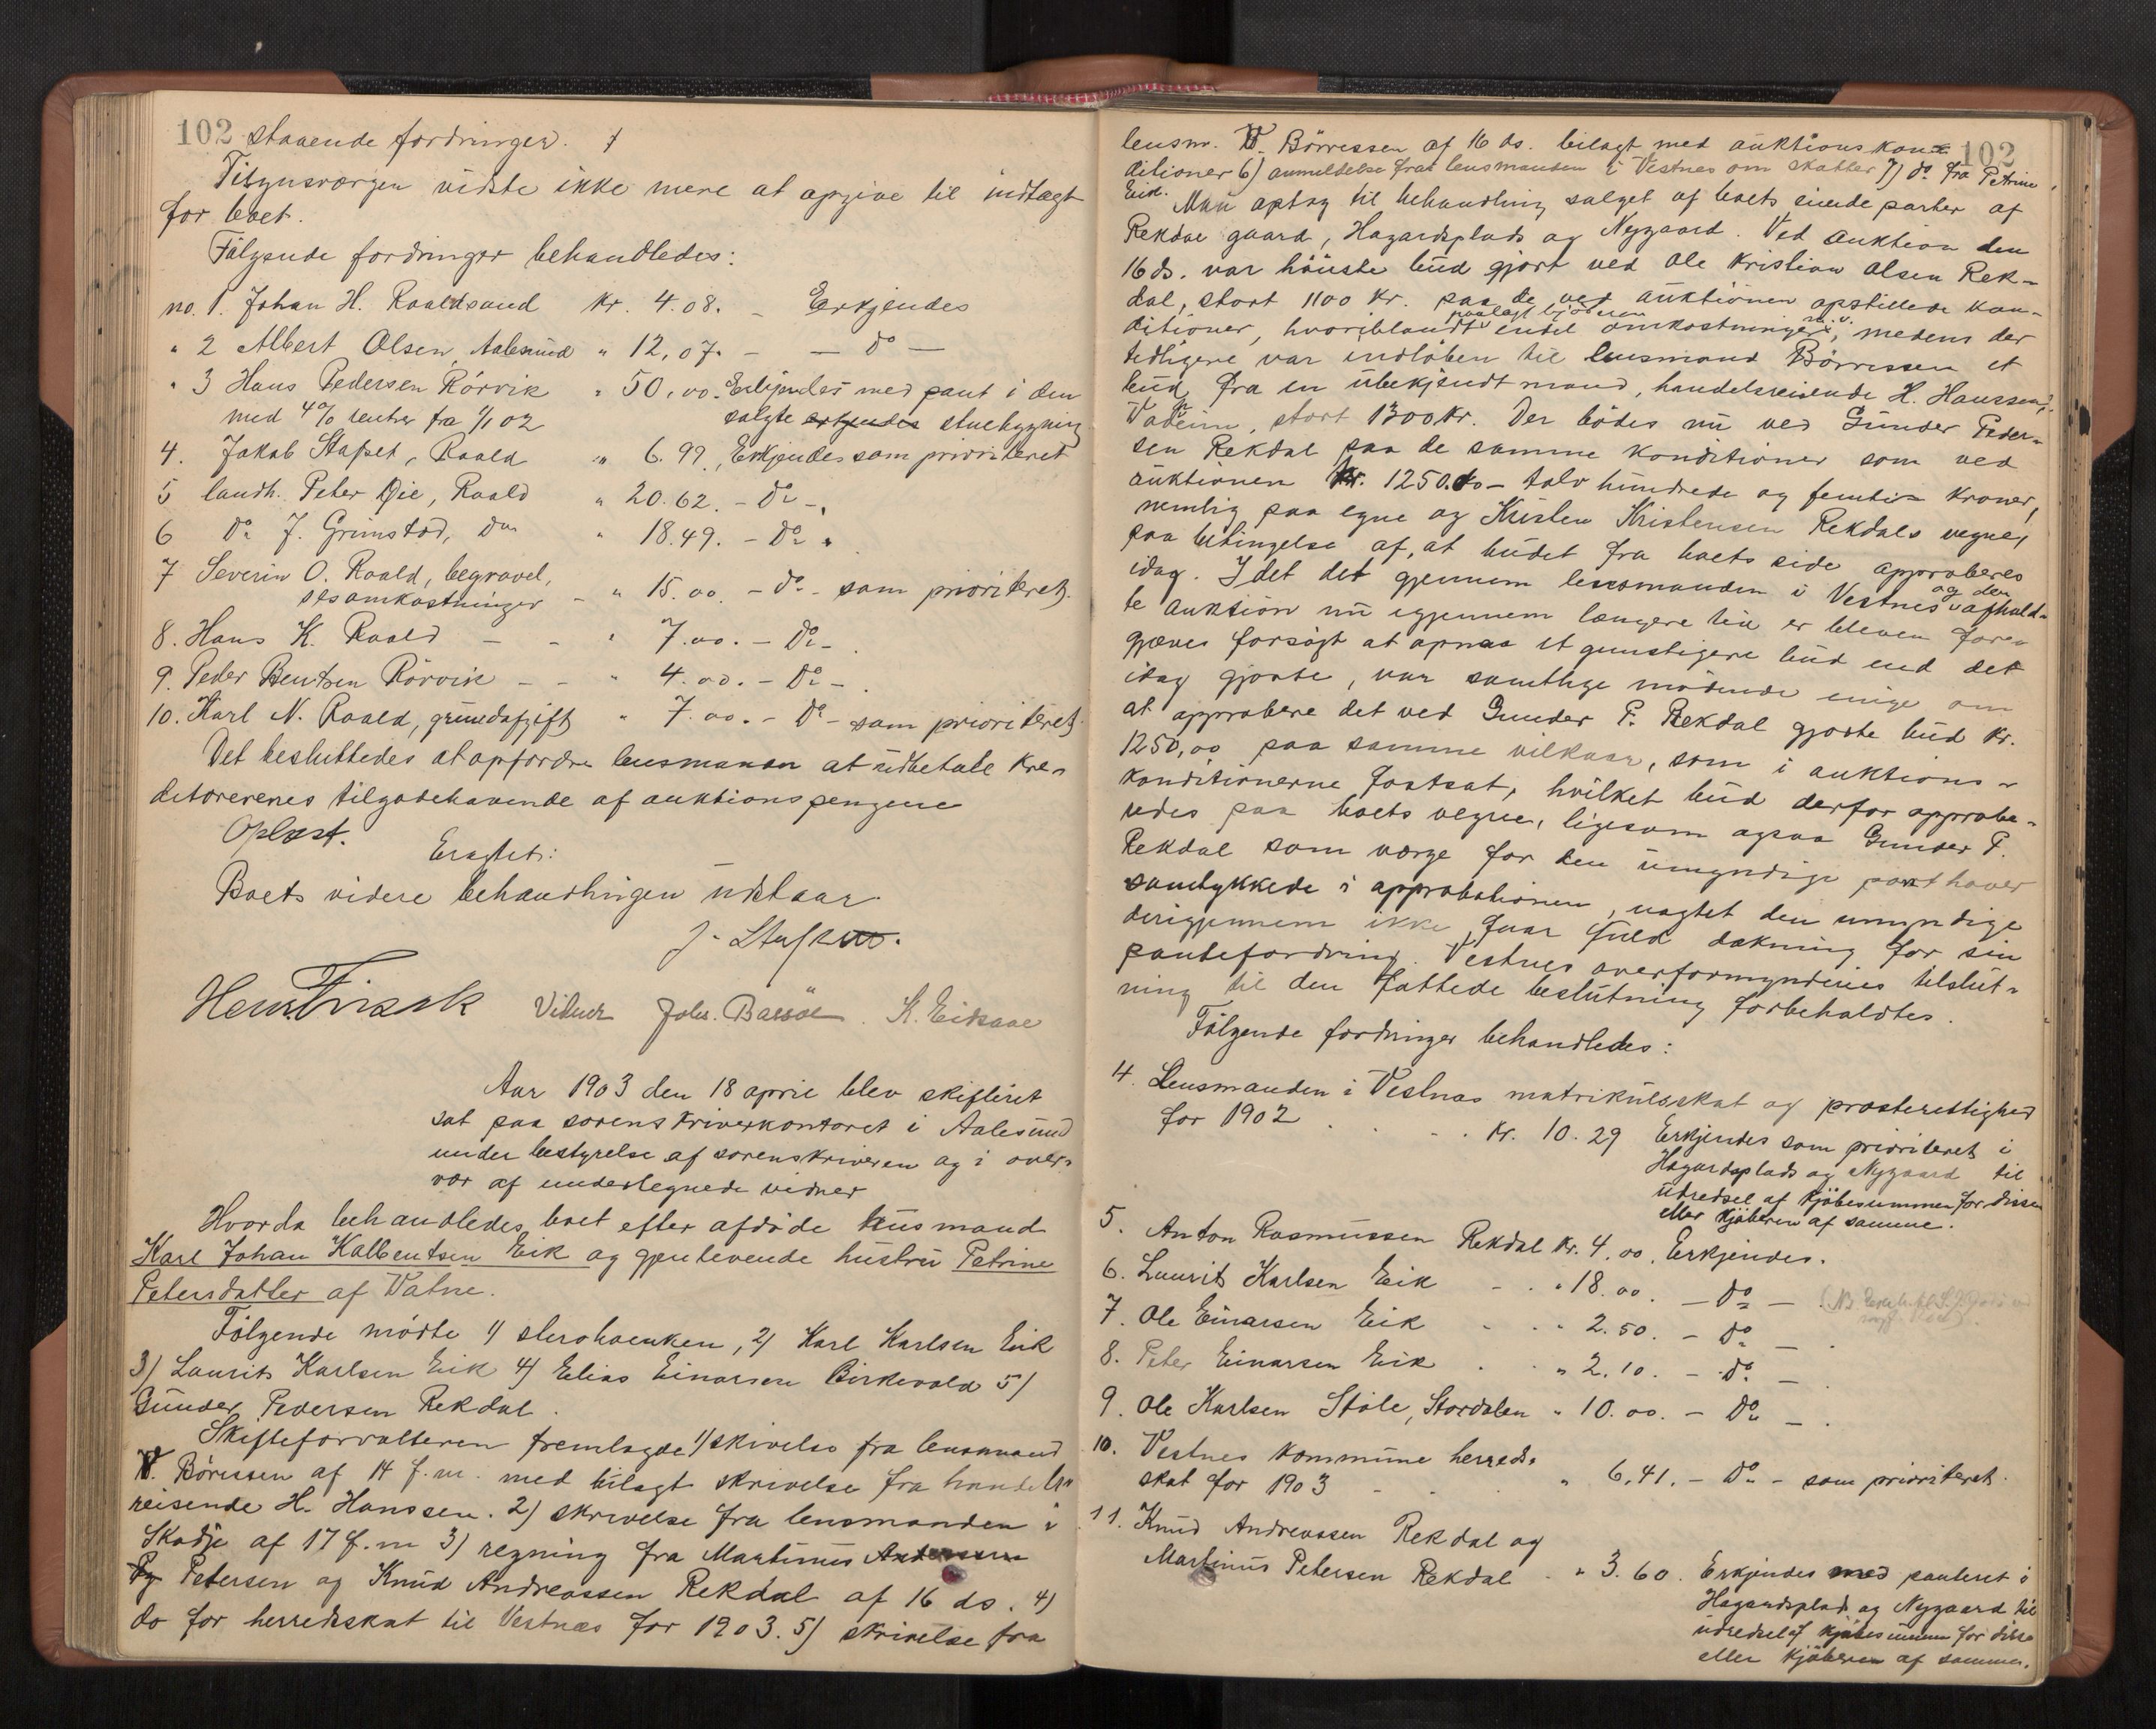 102 staaende fordringer.
Tilsynsværgen vidste ikke mere at opgive til indtægt
for boet.
Følgende fordringer behandledes:
no. 1. Johan H. Roaldsand kr. 4.08. - Erkjendes
" 2 Albert Olsen, Aalesund " 12,07. - - do -
" 3 Hans Pedersen Rörvik " 50,00. Erkjendes med pant i den
med 4% renter fra 1/1 02 solgte erkjendes stuebygning
4. Jakob Stapet, Roald " 6.99, Erkjendes som prioriteret
5 landh. Peter Öie, Roald " 20.62. - do -.
6 do J. Grimstad, do " 18.49. - do "
7 Severin O. Roald, begravel,
sesomkostninger - " 15.00. - do - som prioriteret.
8. Hans K. Roald - - " 7.00. - do -
9. Peder Bentsen Rörvik - - " 4.00. - do - .
10. Karl N. Roald, grundafgift " 7.00. - do - som prioriteret.
Det besluttedes at opfordre lensmanden at udbetale kre-
ditorerenes tilgodehavende af auktionspengene
Oplæst.
Eragtet:
Boets videre behandlingen udstaar.
Vidner Johs. Balsöe. K. Eidsaae
Aar 1903 den 18 april blev skifteret
sat paa sorenskriverkontoret i Aalesund
under bestyrelse af sorenskriveren og i over-
vær af undertegnede vidner
Hvorda behandledes boet efter afdöde husmand
Karl Johan Kalbentsen Eik og gjenlevende hustru Petrine
Petersdatter af Vatne.
Følgende mödte 1) sterboenken, 2) Karl Karlsen Eik
3) Laurits Karlsen Eik 4) Elias Einarsen Birkevold 5)
Gunder Pedersen Rekdal.
Skifteforvalteren fremlagde 1) skrivelse fra lensmand
W. Börresen af 14 f.m. med bilagt skrivelse fra handels-
reisende H. Hanssen. 2) skrivelse fra lensmanden i
Skodje af 17 f.m 3) regning fra Martinus Andersen
Petersen og Knud Andreassen Rekdal af 16 ds. 4)
do for herredsskat til Vestnæs for 1903. 5) skrivelse fra
102
lensm. W. Börressen af 16 ds. bilagt med auktionskon-
ditioner 6) anmeldelse fra lensmanden i Vestnes om skatter 7) do fra Petrine
Eik.
Man optog til behandling salget af boets eiende parter af
Rekdal gaard, Hagardsplads og Nygaard. Ved auktion den
16 ds. var höieste bud gjort ved Ole Kristian Olsen Rek-
dal, stort 1100 kr. paa de ved auktionen opstillede kon-
paalagt kjöberen
ditioner, hvoriblandt endel omkostninger m.v., medens der
tidligere var indlöben til lensmand Börressen et
bud fra en ubekjendt mand, handelsreisende H. Hanssen,
Vadeim, stort 1300 kr. Der bödes nu ved Gunder Peder-
sen Rekdal paa de samme konditioner som ved
auktionen kr. 1250.00 - tolv hundrede og femti - kroner,
nemlig paa egne og Kristen Kristensen Rekdals vegne,
paa betingelse af, at budet fra boets side approberes
idag. Idet det gjennem lensmanden i Vestnes og den afhold-
te auktion nu igjennem længere tid er bleven for-
gjæves forsögt at opnaa et gunstigere bud end det
idag gjorte, var samtlige mödende enige om
at approbere det ved Gunder P. Rekdal gjorte bud kr.
1250,00 paa samme vilkaar, som i auktions-
konditionerne fastsat, hvilket bud derfor approbe-
redes paa boets vegne, ligesom ogsaa Gunder P.
Rekdal som værge for den umyndige panthaver
samtykkede i approbationen, uagtet den umyndige
derigjennem ikke faar fuld dækning for sin
pantefordring. Vestnes overformynderies tilslut-
ning til den fattede beslutning forbeholdtes.
Følgende fordringer behandledes:
4. Lensmanden i Vestnæs matrikulskat og presterettighed
for 1902 . . . kr. 10.29 Erkjendes som prioriteret i
Hagardsplads og Nygaard til
udredsel af kjöbesummen for disse
eller kjöberen af samme.
5. Anton Rasmussen Rekdal kr. 4.00. Erkjendes.
6. Laurits Karlsen Eik - . " 18.00. - do -
7. Ole Einarsen Eik . . " 2.50. - do - .
8. Peter Einarsen Eik . " 2.10. - do - .
9. Ole Karlsen Stöle, Stordalen " 10.00. - do - .
10. Vestnes kommune herreds-
skat for 1903 - . " 6.41. - do - som prioriteret.
11. Knud Andreassen Rekdal og
Martinus Petersen Rekdal . " 3.60. Erkjendes med panteret i
Hagardsplads og Nygaard til
udredsel af kjöbesummen for disse
eller kjöberen af samme.